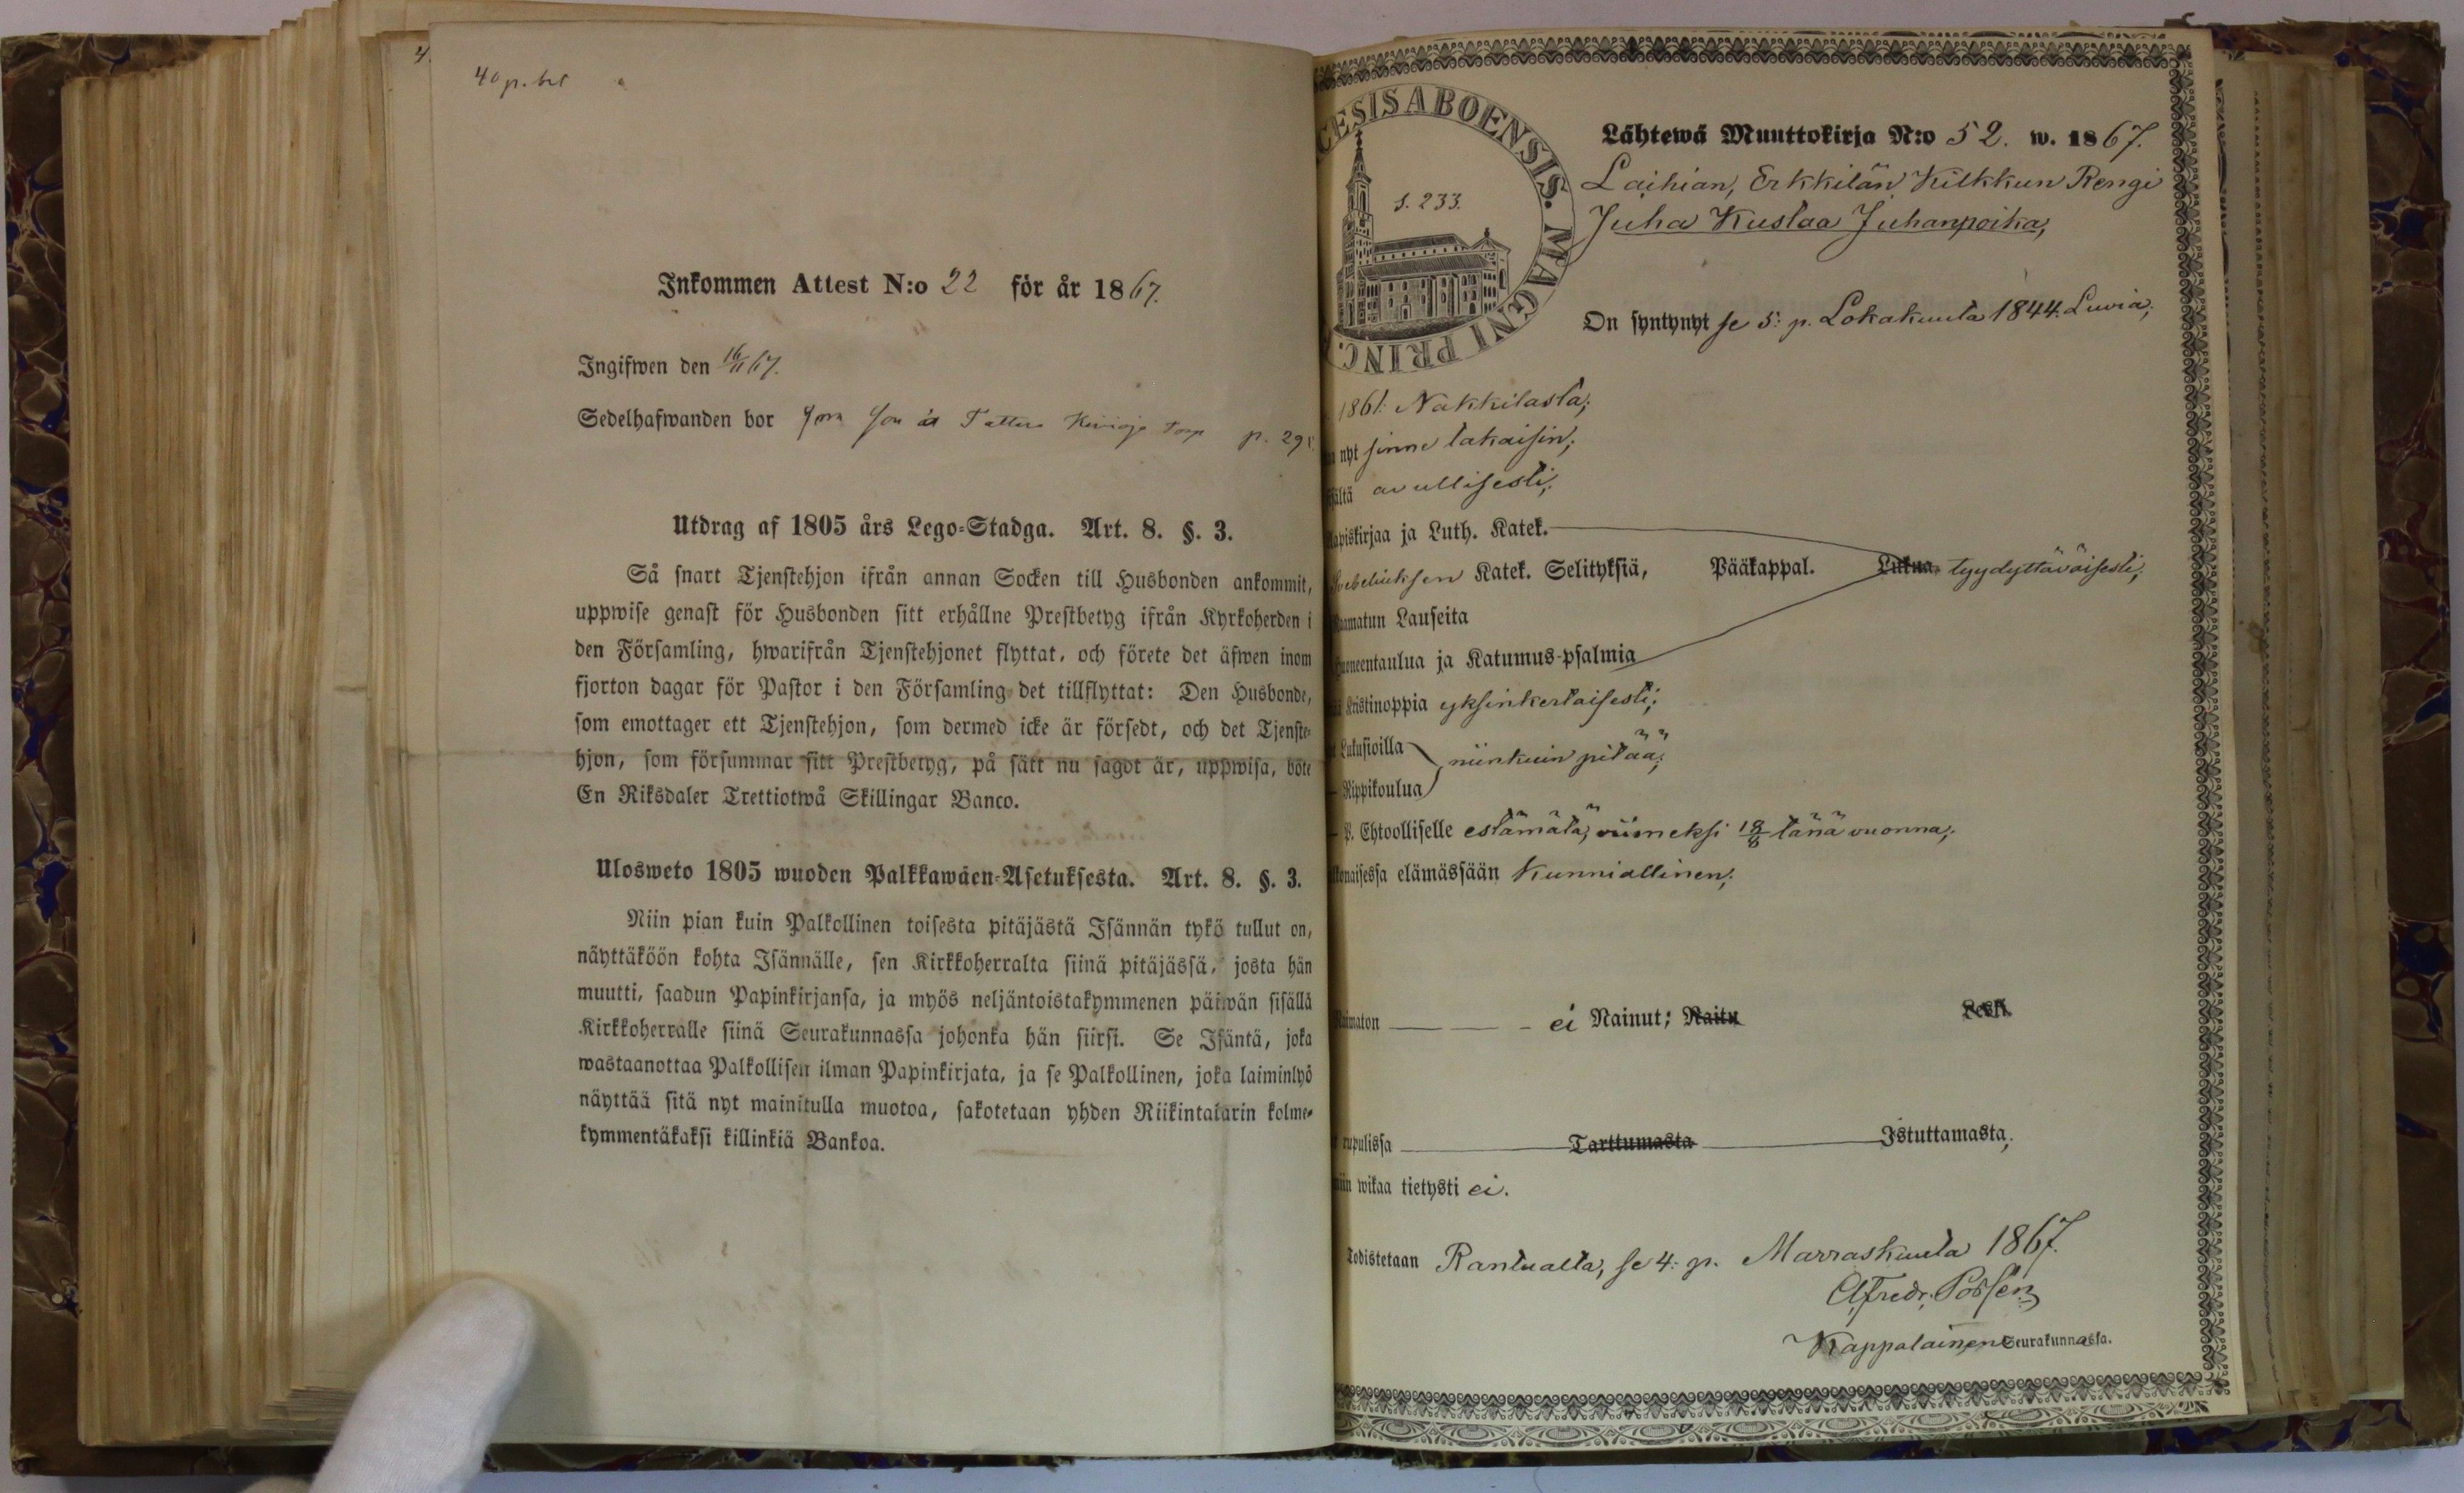 40 p. bet
Inkommen Attest N:o 22 för år 1867.
Ingifwen den 16/11 67.
Sedelhafwanden bor som son å Torp p. 291
Utdrag af 1805 års Lego-Stadga. Art. 8. §. 3.
Så snart Tjenstehjon ifrån annan Socken till Husbonden ankommit,
uppwise genast för Husbonden sitt erhållne Prestbetyg ifrån Kyrkoherden i
den Församling, hwarifrån Tjenstehjonet flyttat, och förete det äfwen inom
fjorton dagar för Pastor i den Församling det tillflyttat: Den Husbonde,
som emottager ett Tjenstehjon, som dermed icke är försedt, och det Tjenste-
hjon, som försummar sitt Prestbetyg, på sätt nu sagdt är, uppwisa, böte
En Riksdaler Trettiotwå Skillingar Banco.
Ulosweto 1805 wuoden Palkkawäen-Asetuksesta. Art. 8. §. 3.
Niin pian kuin Palkollinen toisesta pitäjästä Isännän tykö tullut on,
näyttäköön kohta Isännälle, sen Kirkkoherralta siinä pitäjässä, josta hän
muutti, saadun Papinkirjansa, ja myös neljäntoistakymmenen päiwän sisällä
Kirkkoherralle siinä Seurakunnassa johonka hän siirsi. Se Isäntä, joka
wastaanottaa Palkollisen ilman Papinkirjata, ja se Palkollinen, joka laiminlyö
näyttää sitä nyt mainitulla muotoa, sakotetaan yhden Riikintalarin kolme-
kymmentäkaksi killinkiä Bankoa.
CESIS ABOENSIS. MAGNI PRINC.
s. 233.
Lähtewä Muuttokirja N:o 52. w. 1867.
Laihian, Erkkilän Kilkkun Rengi
Juha Kustaa Juhanpoika,
On syntynyt se 5: p. Lokakuuta 1844. Luvia;
1861. Nakkilasta;
nyt sinne takaisin;
ältä avullisesti;
apiskirjaa ja Luth. Katek.
Svebeliuksen Katek. Selityksiä, Pääkappal. Lukua tyydyttäväisesti;
aamatun Lauseita
uoneentaulua ja Katumus-psalmia
Kristinoppia yksinkertaisesti;
Lukusioilla
niinkuin pitää;
Rippikoulua
P. Ehtoolliselle estämätä, viimeksi 18/8 tänä vuonna;
naisessa elämässään kunniallinen;
aimaton ei Nainut; Naitu Leski
rupulissa Tarttumasta Istuttamasta;
iin wikaa tietysti ei.
Todistetaan Rantualta, se 4: p. Marraskuuta 1867.
Alfredr. Possen
Kappalainen Seurakunnassa.